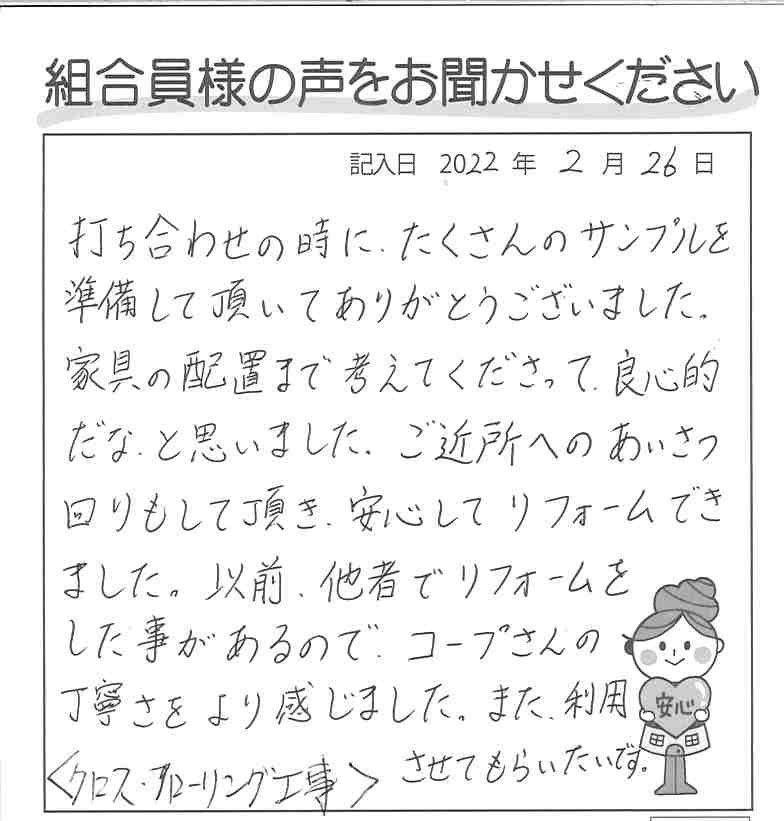 組合員様の声をお聞かせください
記入日 2022 年 2 月 26 日
打ち合わせの時に、たくさんのサンプルを
準備して頂いてありがとうございました。
家具の配置まで考えてくださって、良心的
だな、と思いました。ご近所へのあいさつ
回りもして頂き、安心してリフォームでき
ました。以前、他者でリフォームを
した事があるので、コープさんの
丁寧さをより感じました。また、利用
させてもらいたいです。
安心
<クロス・フローリング工事>